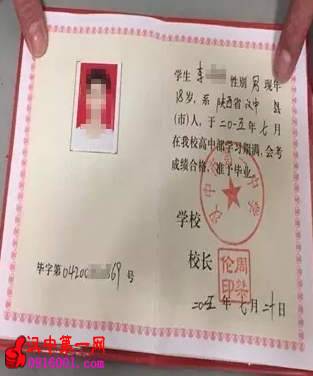 学生 李 性别 男 现年
18岁，系 陕西省 汉中 县
(市)人，于二〇一五年七月
在我校高中部学习期满，会考
成绩合格，准予毕业。
学校
校长
周荣伦印
毕字第04200 69号
二〇一五年 七月二十日
汉中第一网
0916001.com